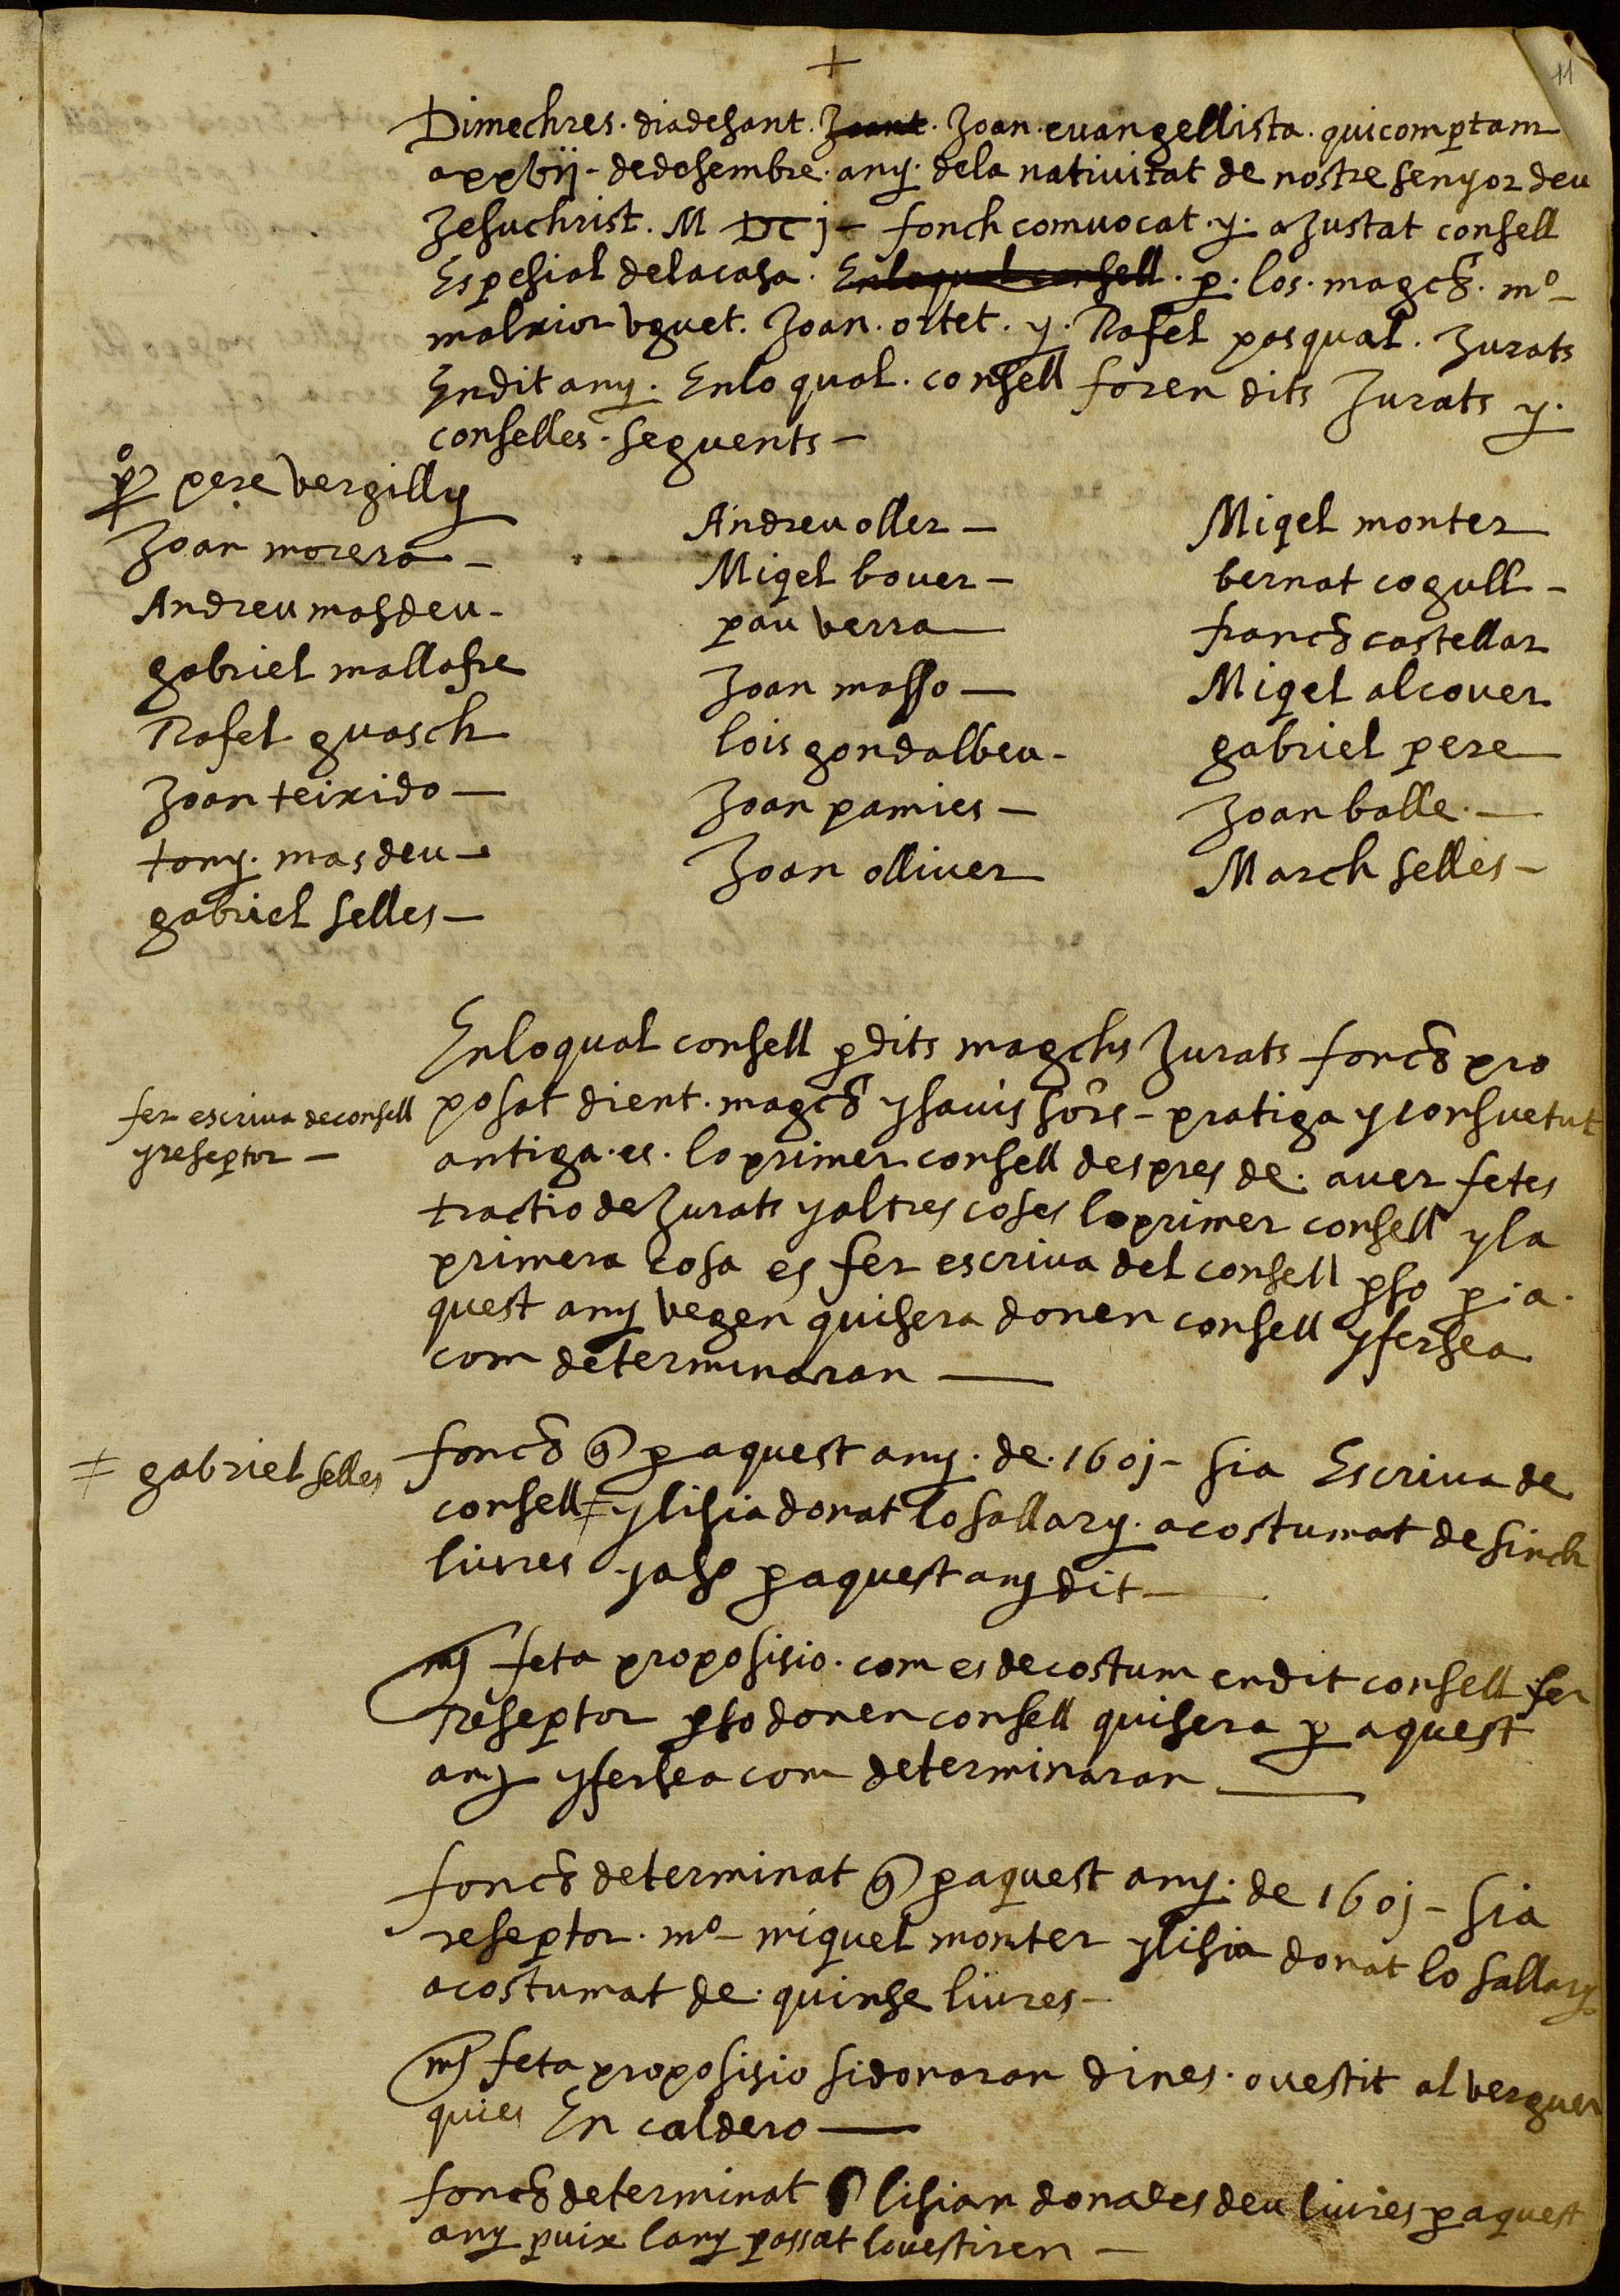 +
11
Dimechres. dia de sant. Joant. Joan. evangellista. qui comptam
a xxvij - de desembre. any. de la nativitat de nostre senyor deu
Jesuchrist. M DC j - fonch comvocat. y. aJustat consell
Espesial de la casa. En lo qual consell. p. los. magchs. mº -
malxior vguet. Joan. ortet. y. Rafel pasqual. Jurats
En dit any. En lo qual. consell foren dits Jurats y.
conselles. seguents -
pº pere vergilly
Joan morera -
Andreu masdeu -
gabriel mallafre
Rafel guasch
Joan teixido -
tony. masdeu -
gabriel selles -
Andreu oller -
Miqel bover -
pau verra
Joan masso -
lois gondalbeu -
Joan pamies -
Joan olliver
Miqel monter
bernat cogull -
franch castellar
Miqel alcover
gabriel pere
Joan balle. -
March selles -
En lo qual consell p dits magchs Jurats fonch pro
fer escriva de consell
y reseptor -
posat dient. magchs y savis sors - pratiga y consuetut
antiga. es. lo primer consell despres de. aver fetes
tractio de Jurats y altres coses lo primer consell y la
primera cosa es fer escriva del consell pso p. a.
quest any vegen qui sera donen consell y fersea
com determinaran -
= gabriel selles
fonch q p aquest any. de. 160j - sia Escriva de
consell = y li sia donat lo sallary. acostumat de sinch
liures y aso p aquest any dit -
ms feta proposisio. com es de costum en dit consell fer
reseptor pso donen consell qui sera p aquest
any y fersea com determinaran -
fonch determinat q p aquest any. de 160j - sia
reseptor. mº - miquel monter y li sia donat lo sallary
acostumat de. quinse liures -
ms feta proposisio si donaran dines. o vestit al verguer
qui es En caldero -
fonch determinat q li sian donades deu liures p aquest
any puix lany passat lo vestiren -